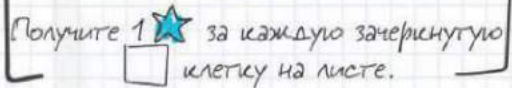 Получите 1 за каждую зачеркнутую
клетку на листе.